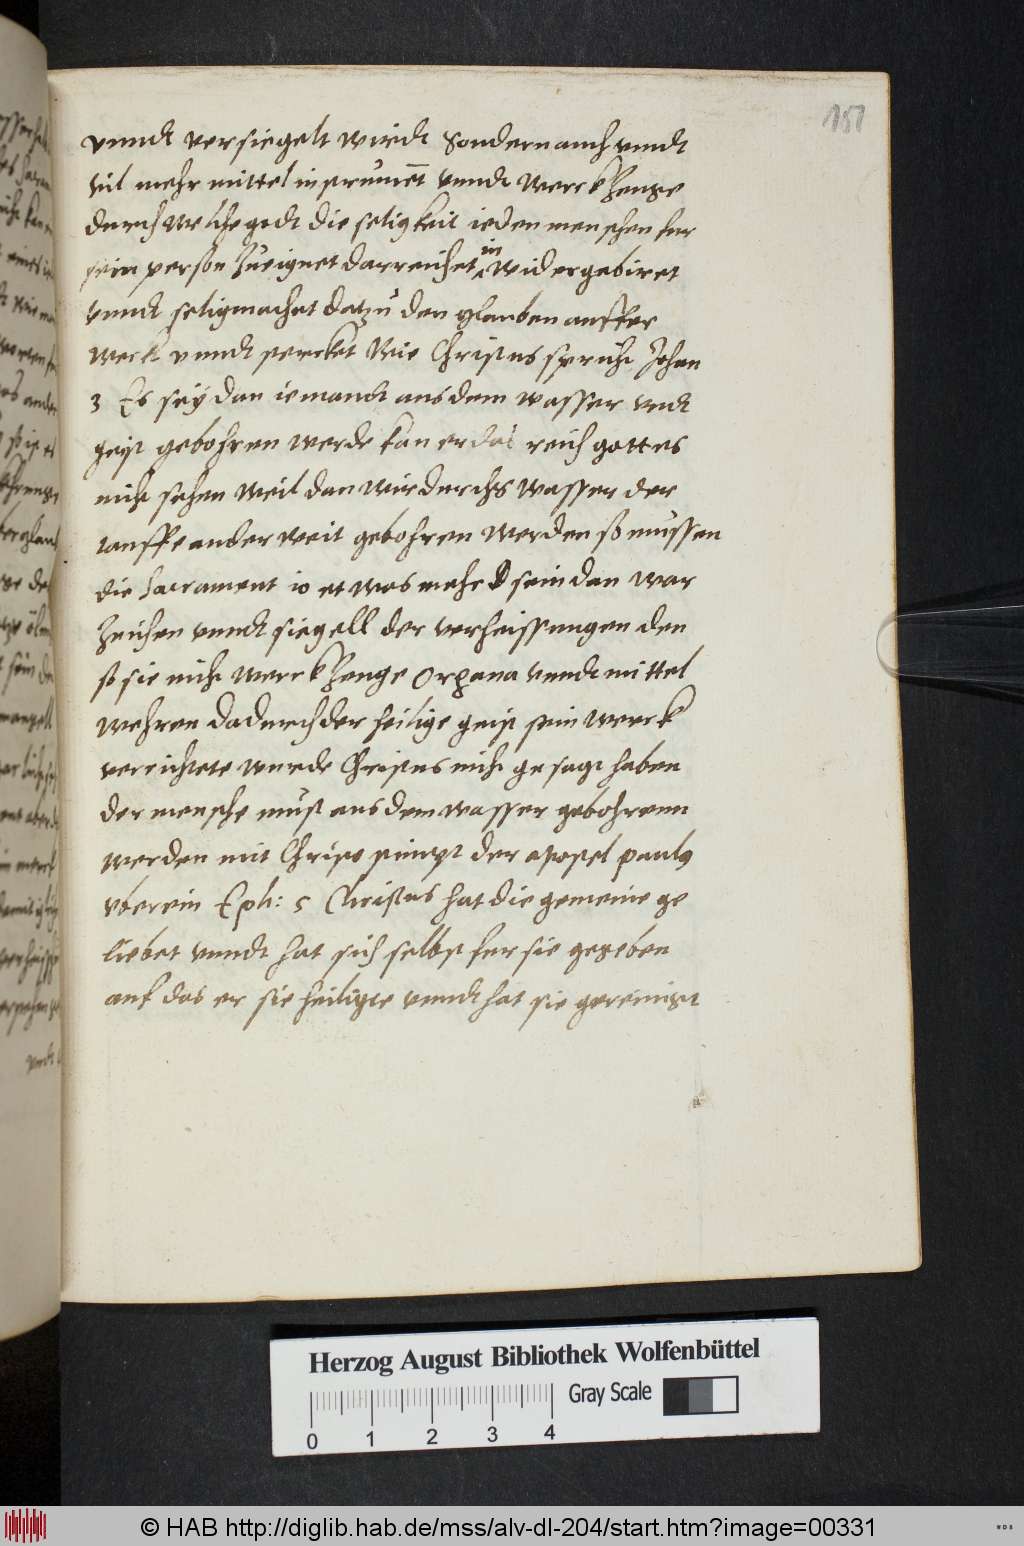 151
vnndt versiegelt wirdt Sondern auch vnndt
vil mehr mittel instrumēt vnndt Werckzeuge
durch Welche godt die seligkeit ieden menschen fur
sein person zueignet darreichet in widergebiret
vnndt seligmachet datzu den glauben auffer
weckt vnndt stercket Wie Christus spricht Johan
3 Es sey dan iemandt aus dem wasser vndt
geist gebohren werde kan er das reich gottes
nicht sehen Weil dan wir durchs Wasser der
tauffe anderweit gebohren werden so mussen
die Sacrament io etwas mehr sein dan war
Zeichen vnndt siegell der verheissungen den
so sie nicht Werckzeuge Organa vnndt mittel
wehren dadurch der heilige geist sein werck
verrichtete wurde Christus nicht gesagt haben
der mensche must aus dem wasser gebohrenn
werden mit Christo stimpt der apostel paulus
vberein Eph: 5 Christus hat die gemeine ge
liebet vnndt hat sich selbst fur sie gegeben
auf das er sie heiligte vnndt hat sie gereinigt
vndt
Herzog August Bibliothek Wolfenbüttel
Gray Scale
0 1 2 3 4
© HAB http://diglib.hab.de/mss/alv-dl-204/start.htm?image=00331